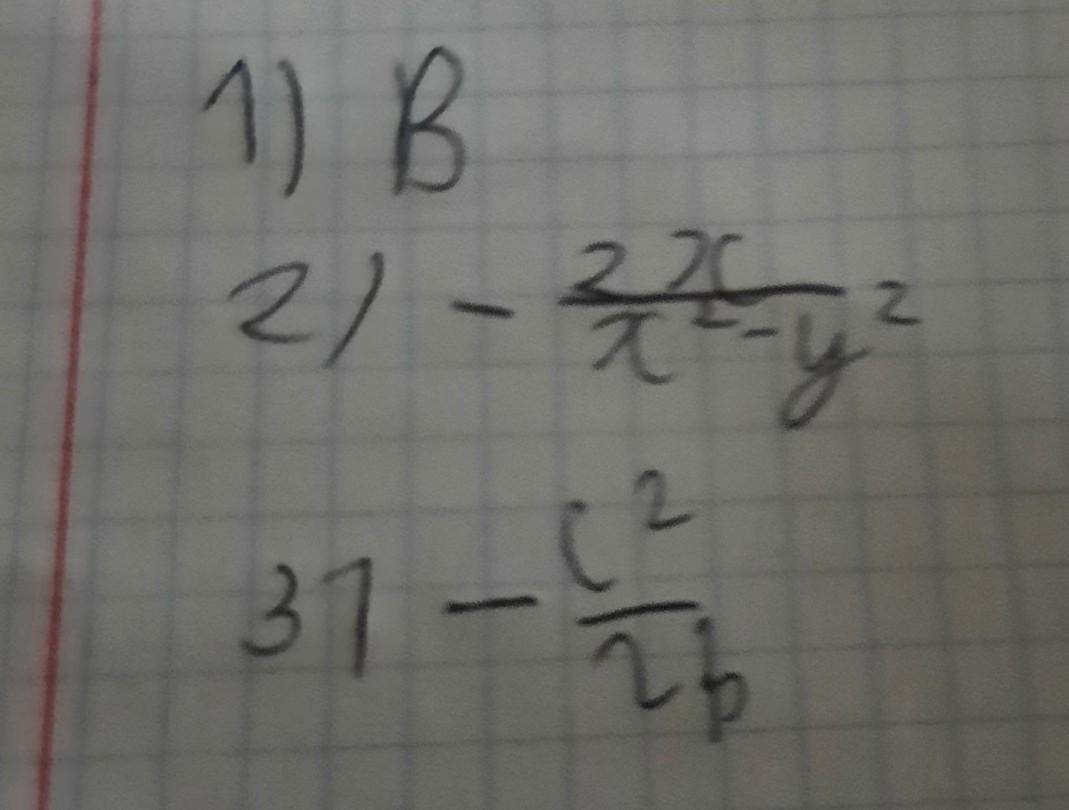 1) B
2) - 2x/(x² - y²)
3) - c²/2b